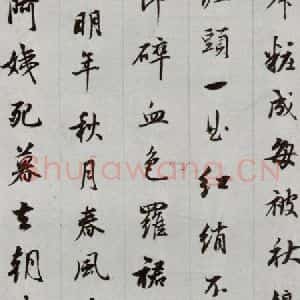 粧成每被秋
頭一曲紅綃不
碎血色羅裙
明年秋月春風
阿姨死暮去朝
Shufawang.CN